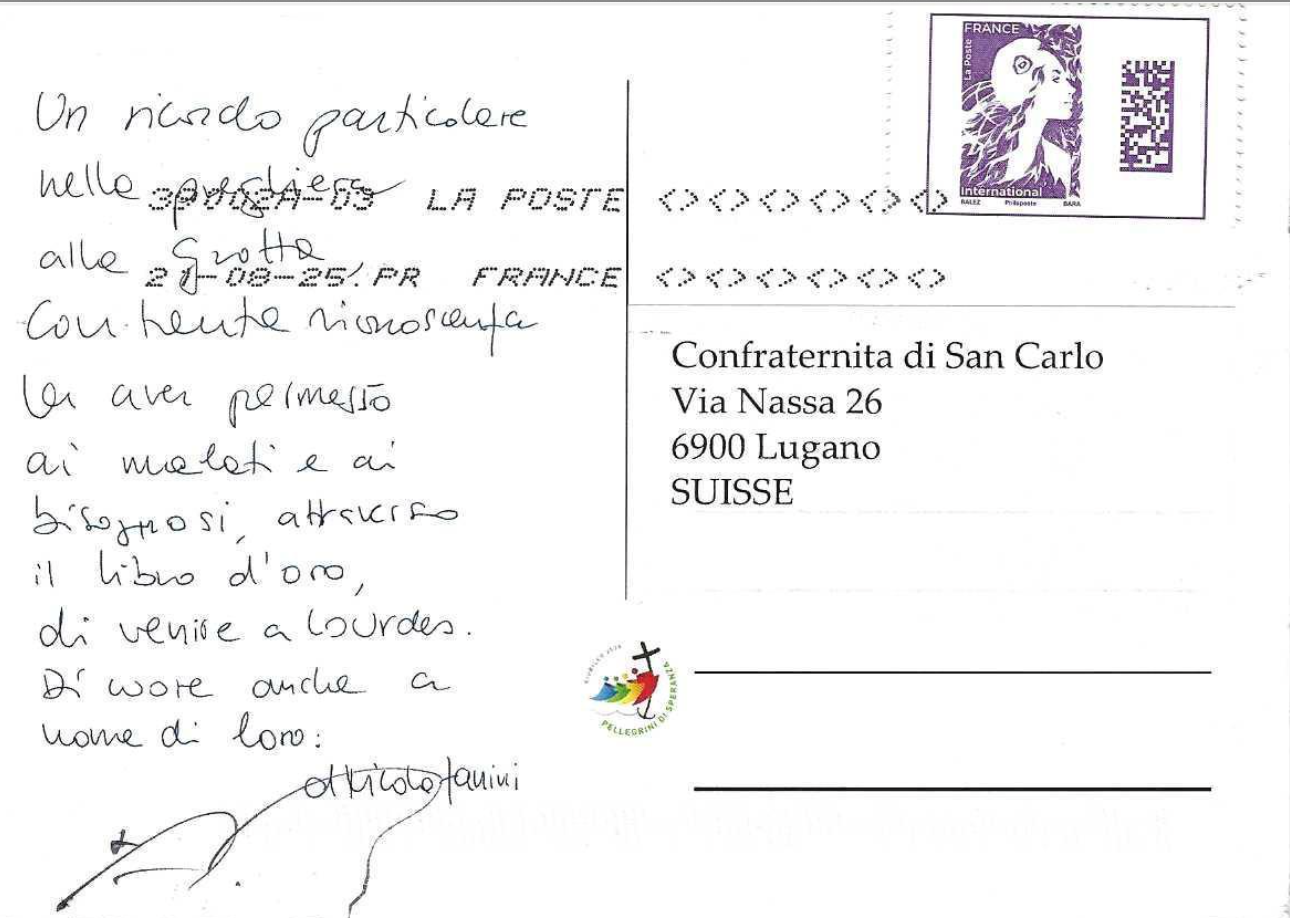 Un ricordo particolare
nella preghiera
alla Grotta
Con tanta riconoscenza
per aver permesso
ai malati e ai
bisognosi, attraverso
il libro d'oro,
di venire a Lourdes.
Di cuore anche a
nome di loro:
FRANCE
La Poste
International
BALEZ Philaposte BARA
LA POSTE
21-08-25 PR FRANCE
Confraternita di San Carlo
Via Nassa 26
6900 Lugano
SUISSE
PELLEGRINI DI SPERANZA